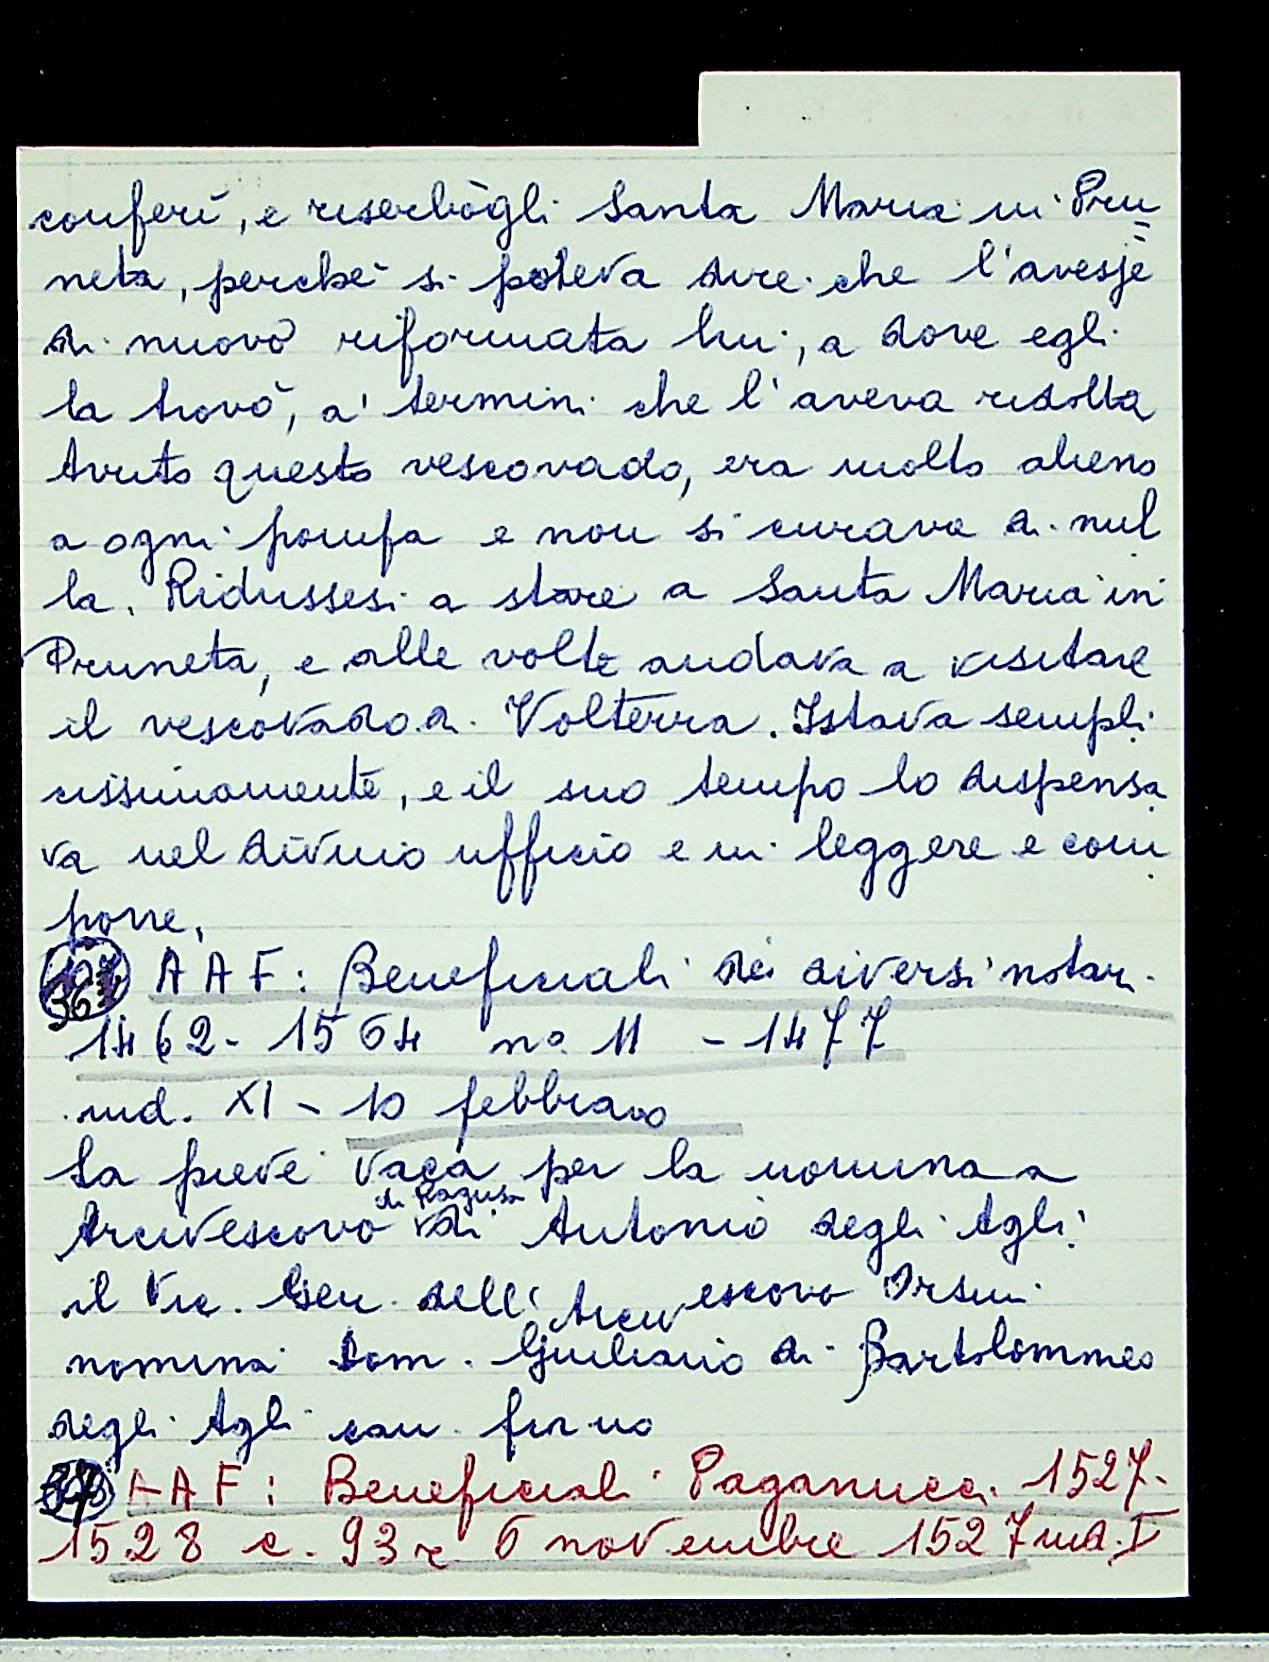 conferì, e riserbògli Santa Maria in Pru=
neta, perchè si poteva dire che l'avesse
di nuovo riformata lui, a dove egli
la trovò, a' termini che l'aveva ridotta
Avuto questo vescovado, era molto alieno
a ogni pompa e non si curava di nul
la. Ridussesi a stare a Santa Maria in
Pruneta, e alle volte andava a visitare
il vescovado di Volterra. Istava sempli
cissimamente, e il suo tempo lo dispensa
va nel divino ufficio e in leggere e com
porre.
36 AAF: Beneficiali di diversi notari
1462-1564 n° 11 - 1477
ind. XI - 10 febbraio
La pieve vaca per la nomina a
di Ragusa
Arcivescovo di Antonio degli Agli
il Vic. Gen. dell'Arcivescovo Orsini
nomina Dom. Giuliano di Bartolommeo
degli Agli can. fior.no
37 AAF: Beneficiali Paganucci 1527-
1528 c. 93r 6 novembre 1527 ind. I